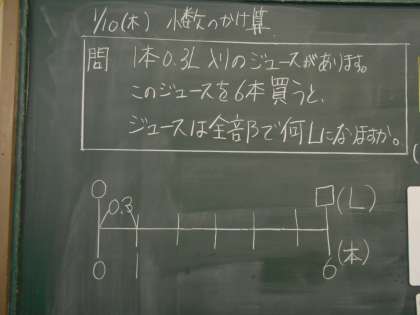 1/10(木) 小数のかけ算
問 1本0.3L入りのジュースがあります。
このジュースを6本買うと、
ジュースは全部で何Lになりますか。
0 □(L)
0.3
0 1 6(本)